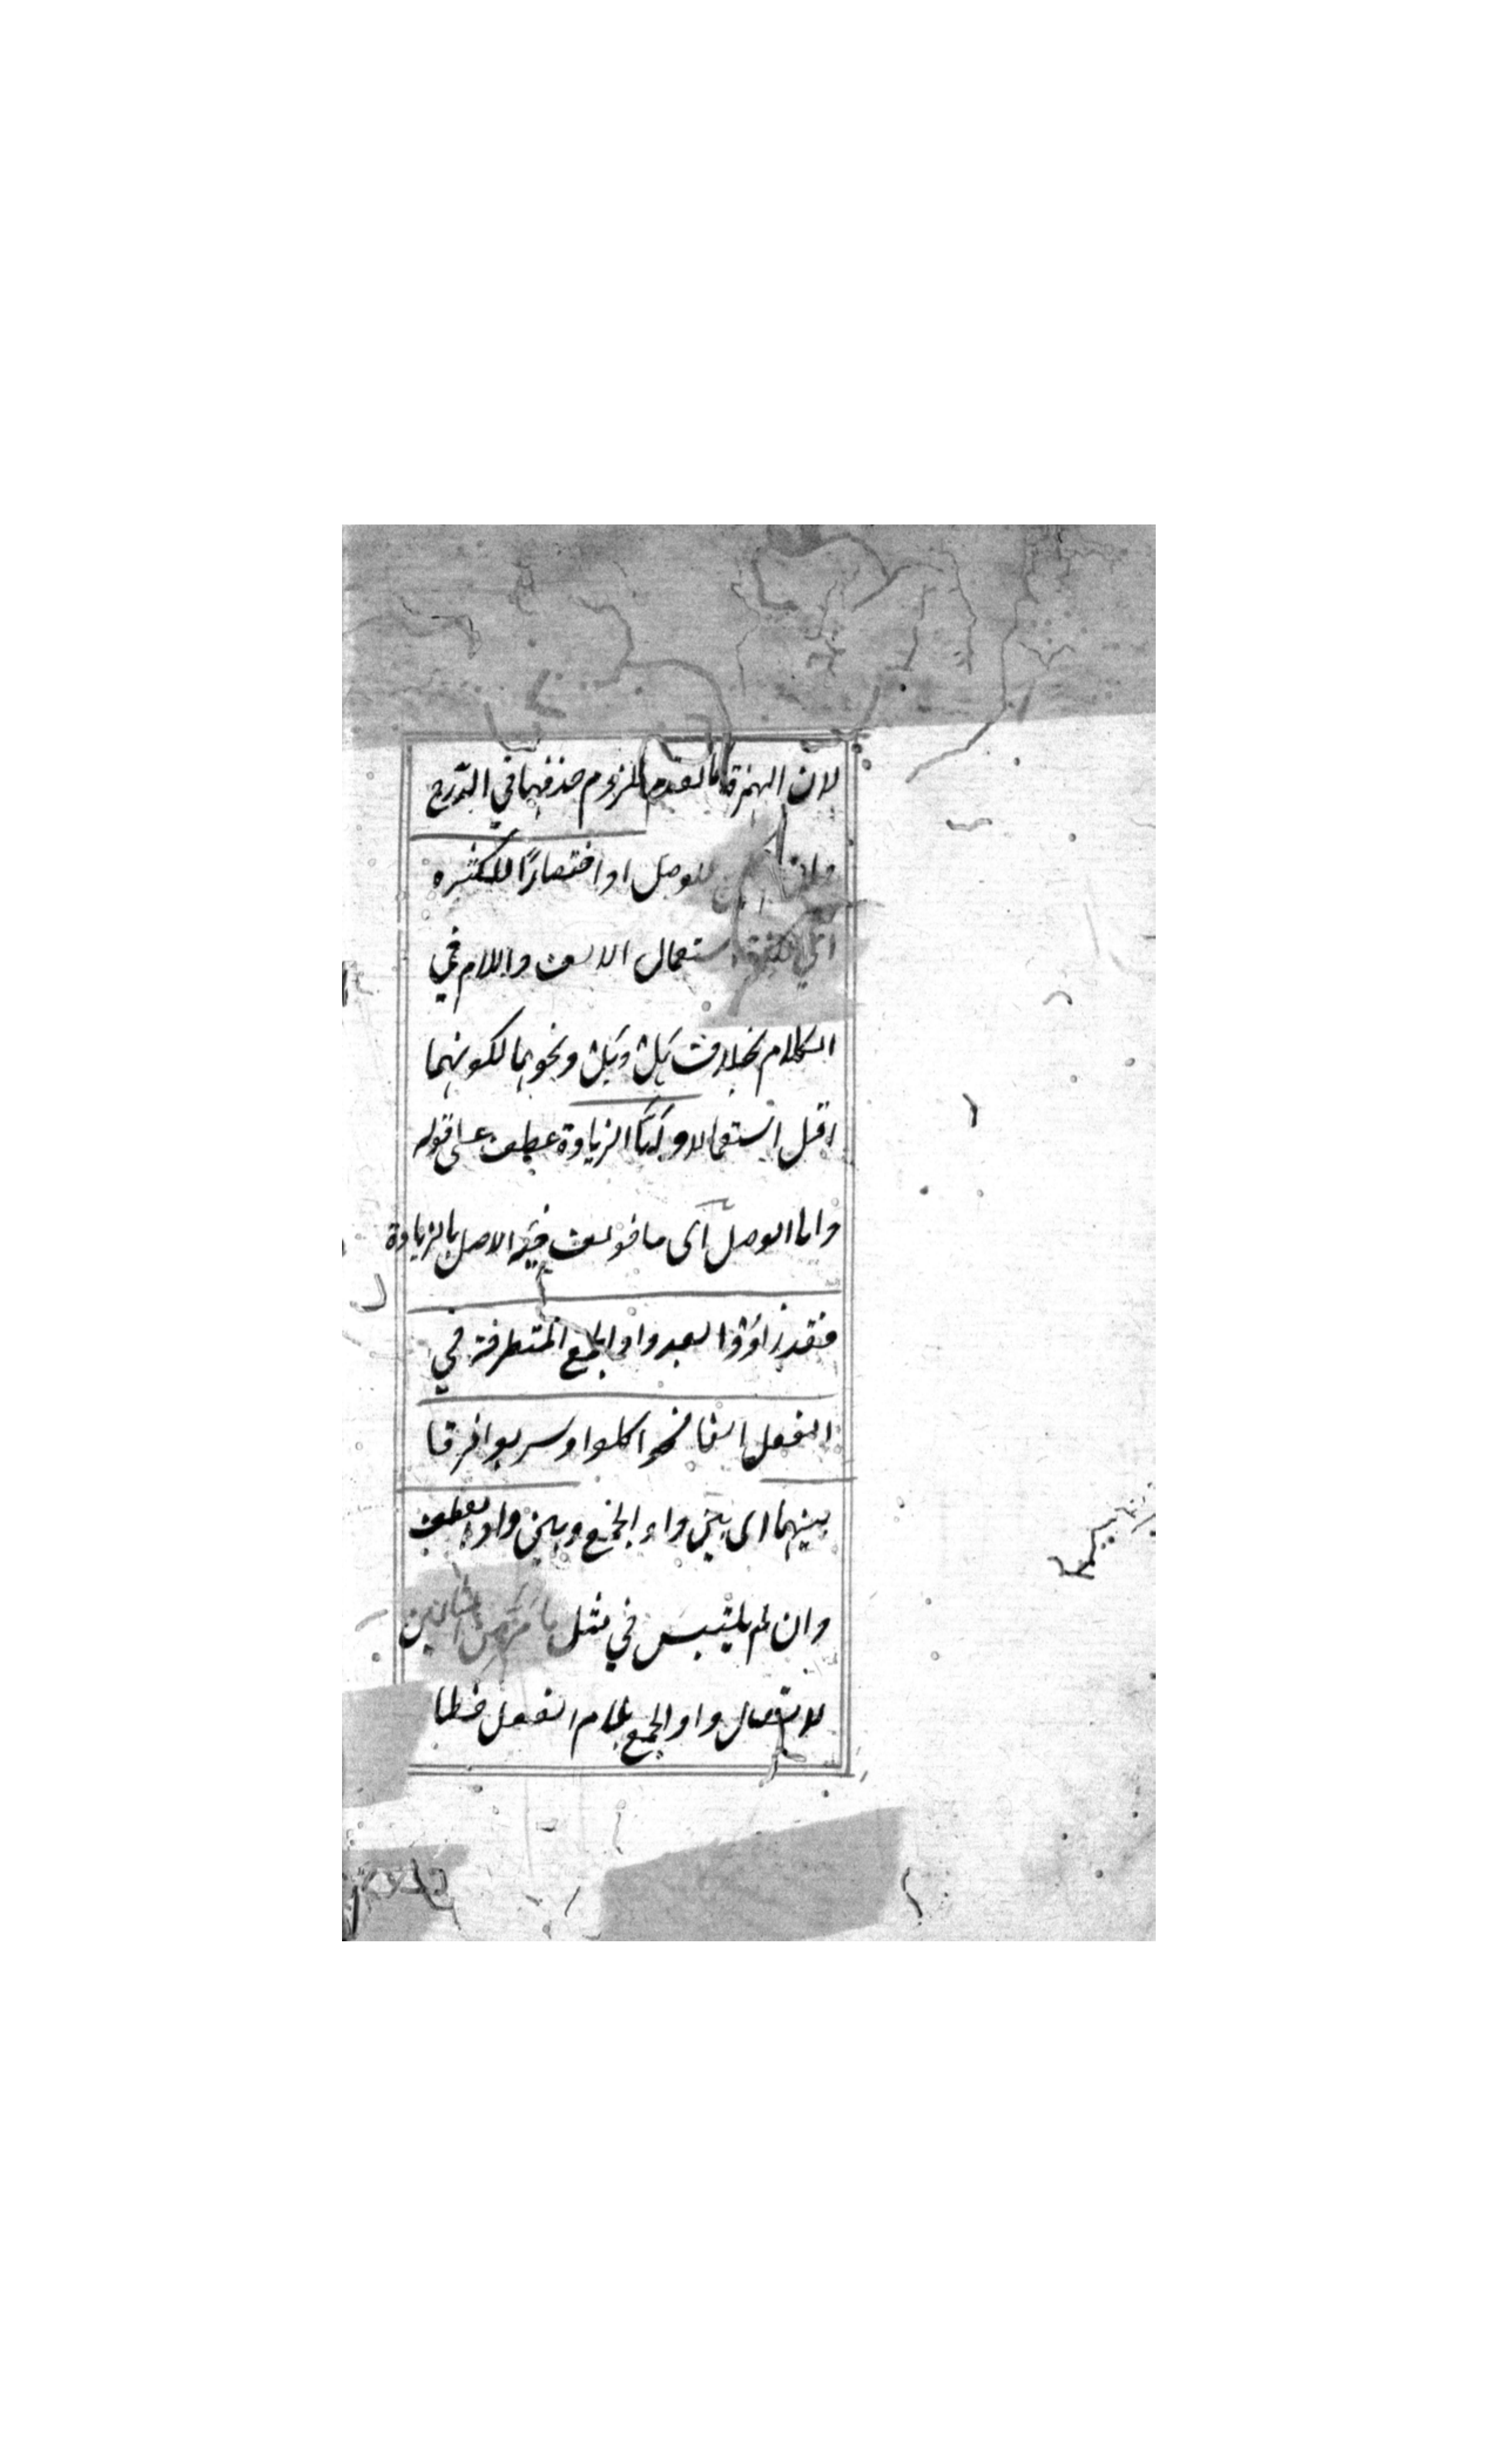 لان الهمزة كالعدم للزوم حذفها في الدّرج
للوصل او اختصارًا للكثرة
اي لكثرة استعمال الالف واللام في
الكلام بخلاف بك وبك ونحوهما لكونهما
اقل استعمالا و امّا الزيادة عطف على قوله
واما الوصل اى ما خولف فيه الاصل بالزيادة
فقد زادوا بعد واو الجمع المتطرفة في
الفعل الفا نحو اكلوا وشربوا فرقا
بينهما اى بين واو الجمع وبين واو العطف
وان لم يلتبس في مثل
لاتصال واو الجمع بلام الفعل خطا